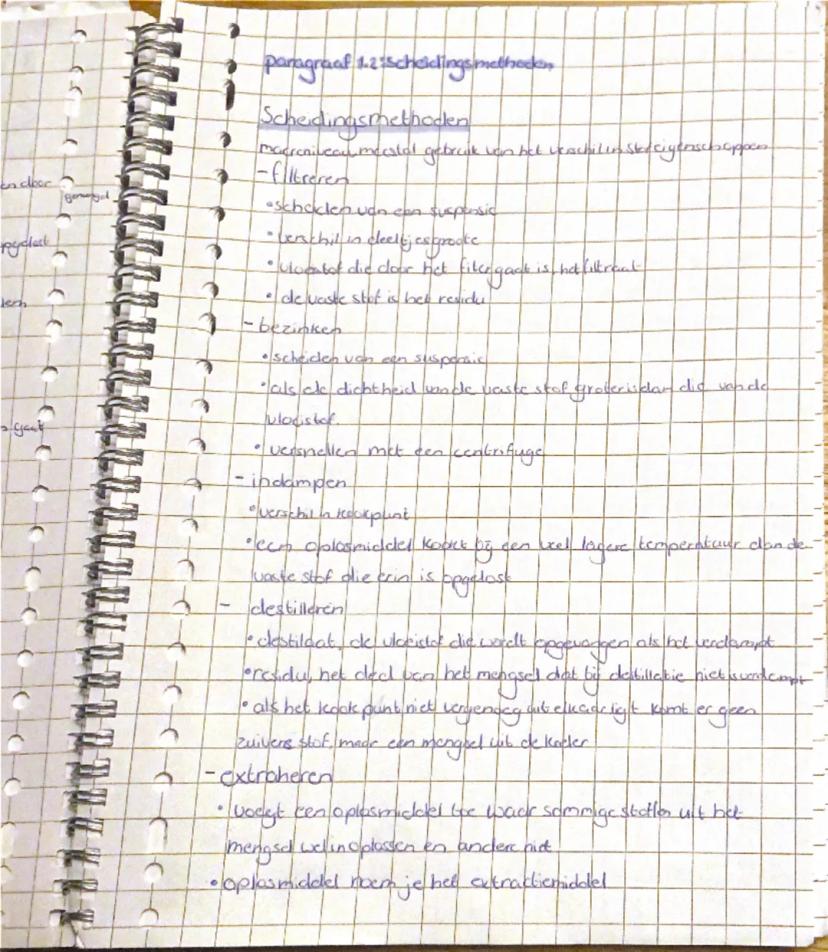 en door
gemengd
opgelost
dem
gaat
paragraaf 1.2: scheidingsmethoden
Scheidingsmethoden
macroniveau, meestal gebruik van het verschil in stofeigenschappen
- filtreren
• scheiden van een suspensie
• verschil in deeltjesgrootte
• vloeistof die door het filter gaat is het filtraat
• de vaste stof is het residu
- bezinken
• scheiden van een suspensie
• als de dichtheid van de vaste stof groter is dan die van de
vloeistof.
• versnellen met een centrifuge
- indampen
• verschil in kookpunt
• een oplosmiddel kookt bij een veel lagere temperatuur dan de
vaste stof die erin is opgelost
- destilleren
• destilaat, de vloeistof die wordt opgevangen als het verdampt
• residu, het deel van het mengsel dat bij destillatie niet is verdampt
• als het kookpunt niet ver genoeg uit elkaar ligt komt er geen
zuivere stof, maar een mengsel uit de koeler
- extraheren
• voegt een oplosmiddel toe waar sommige stoffen uit het
mengsel wel in oplossen en andere niet
• oplosmiddel noem je het extractiemiddel